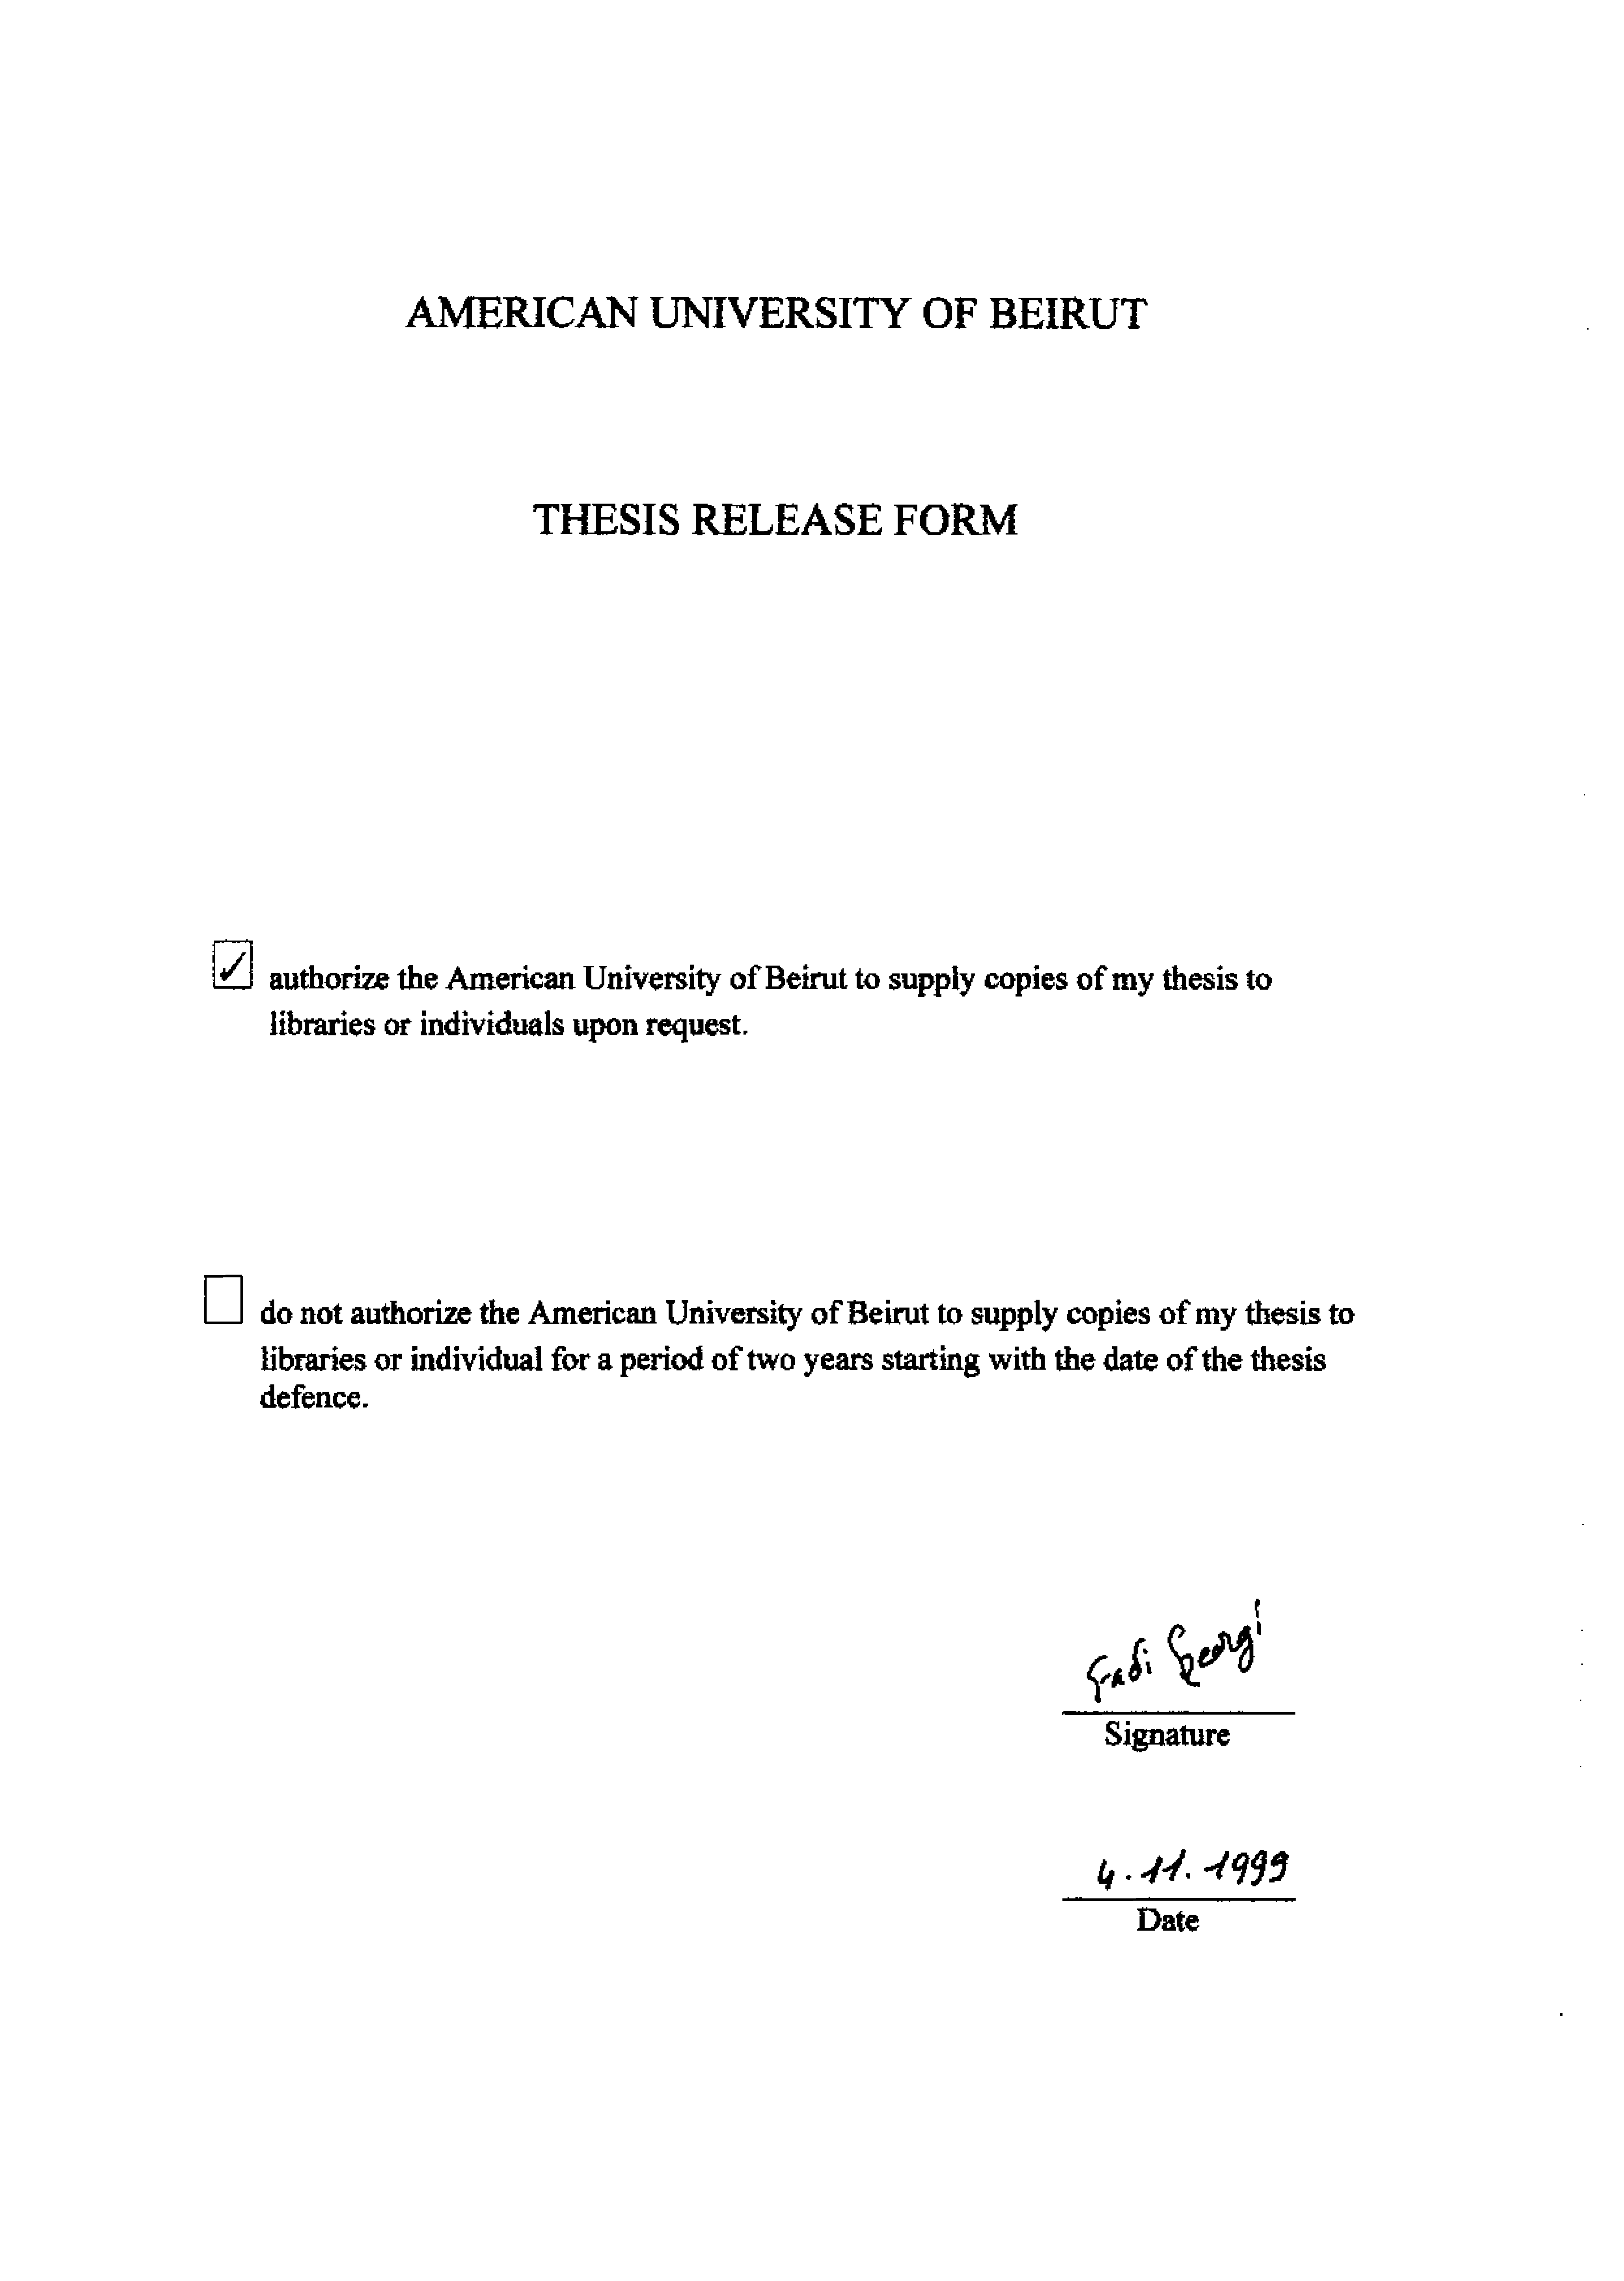 AMERICAN UNIVERSITY OF BEIRUT
THESIS RELEASE FORM
authorize the American University of Beirut to supply copies of my thesis to
libraries or individuals upon request.
do not authorize the American University of Beirut to supply copies of my thesis to
libraries or individual for a period of two years starting with the date of the thesis
defence.
Fadi Georgi
Signature
4.11.1999
Date